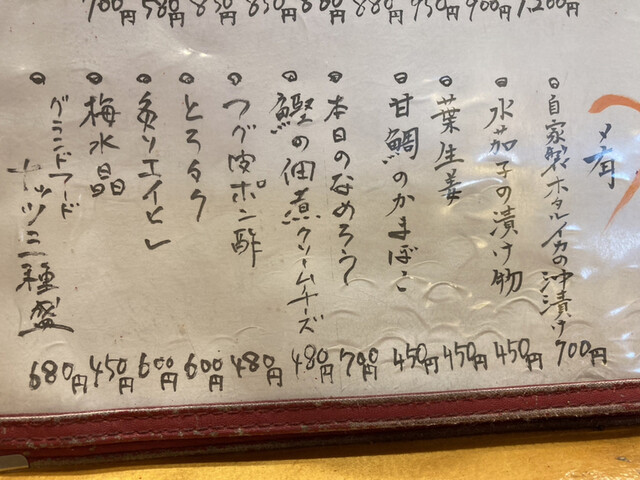 700円 580円 850円 850円 800円 880円 950円 900円 1,200円
〆有
自家製ホタルイカの沖漬け 700円
水茄子の漬け物 450円
葉生姜 450円
甘鯛のかまぼこ 450円
本日のなめろう 700円
鰹の佃煮クリームチーズ 480円
フグ皮ポン酢 480円
とろタク 600円
炙りエイヒレ 600円
梅水晶 450円
ナッツ三種盛 680円